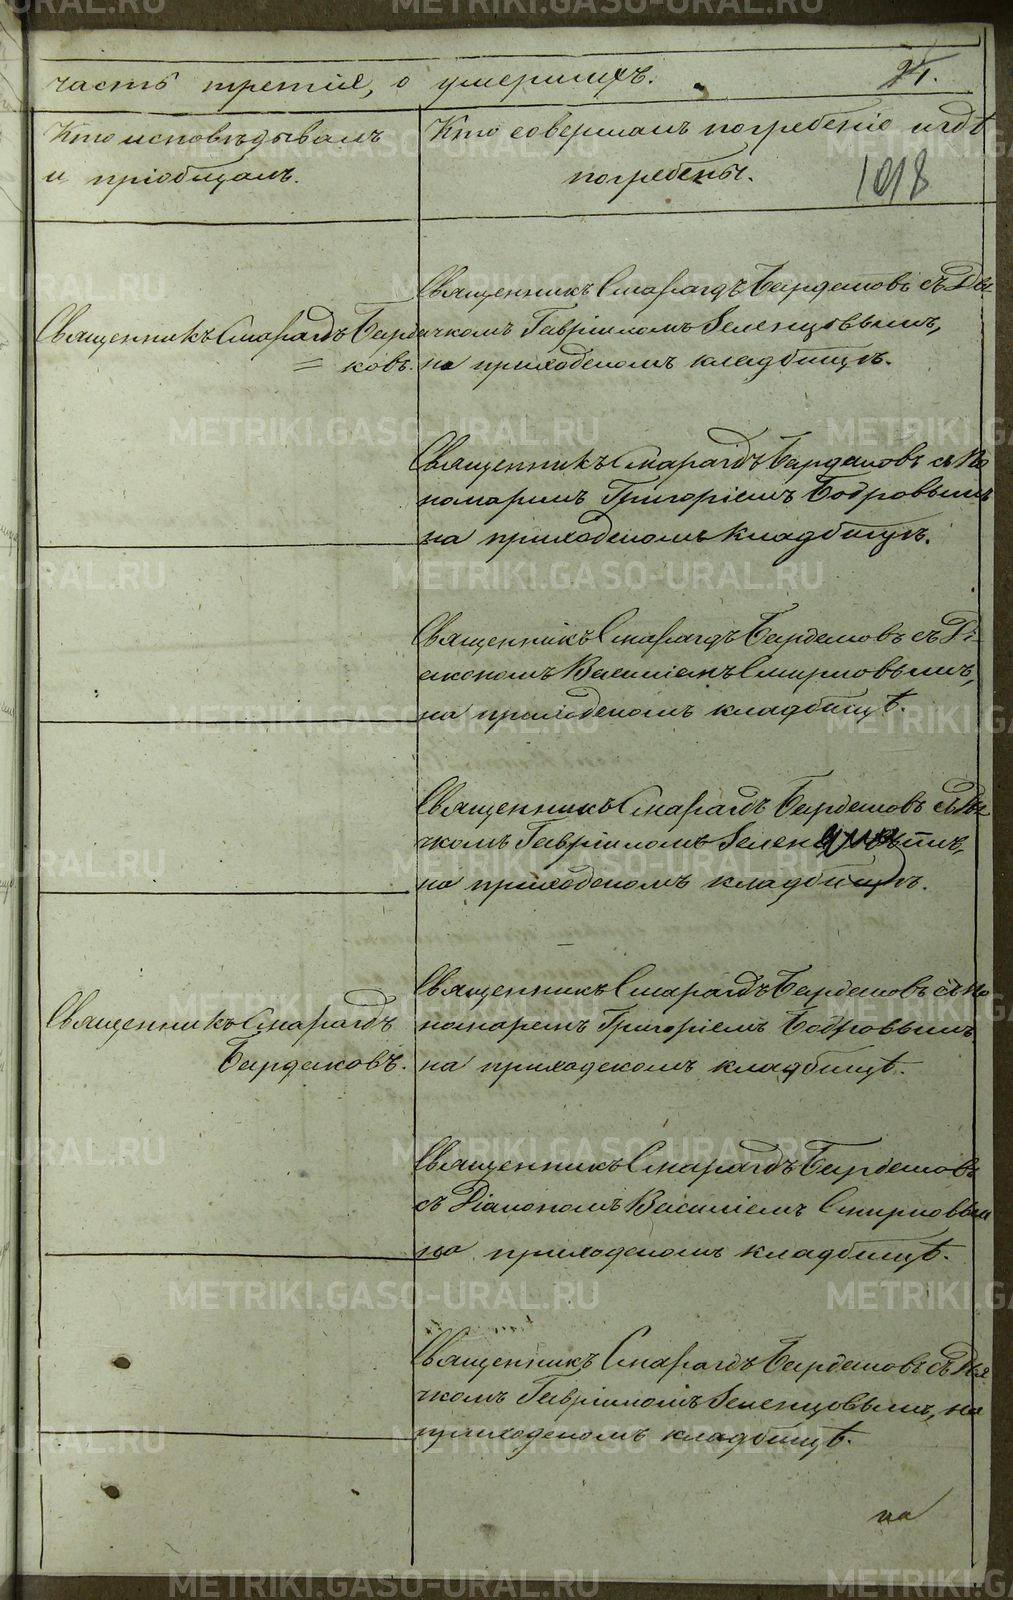 часть третія, о умершихъ. 21.
Кто исповѣдывалъ
и пріобщалъ.
Кто совершалъ погребеніе и гдѣ
погребены.
1018
Священникъ Смарагдъ Барда
= ковъ.
Священникъ Смарагдъ Бардаковъ съ Дья
чкомъ Гавріиломъ Зеленцовымъ,
на приходскомъ кладбищѣ.
Священникъ Смарагдъ Бардаковъ съ По
номаремъ Григоріемъ Бобровымъ
на приходскомъ кладбищѣ.
Священникъ Смарагдъ Бардаковъ съ Ді
акономъ Василіемъ Смирновымъ,
на приходскомъ кладбищѣ.
Священникъ Смарагдъ Бардаковъ съ Дья
чкомъ Гавріиломъ Зеленцовымъ,
на приходскомъ кладбищѣ.
Священникъ Смарагдъ
Бардаковъ.
Священникъ Смарагдъ Бардаковъ съ По
номаремъ Григоріемъ Бобровымъ
на приходскомъ кладбищѣ.
Священникъ Смарагдъ Бардаковъ
съ Діакономъ Василіемъ Смирновым
на приходскомъ кладбищѣ.
Священникъ Смарагдъ Бардаковъ съ Дья
чкомъ Гавріиломъ Зеленцовымъ, на
приходскомъ кладбищѣ.
на
METRIKI.GASO-URAL.RU